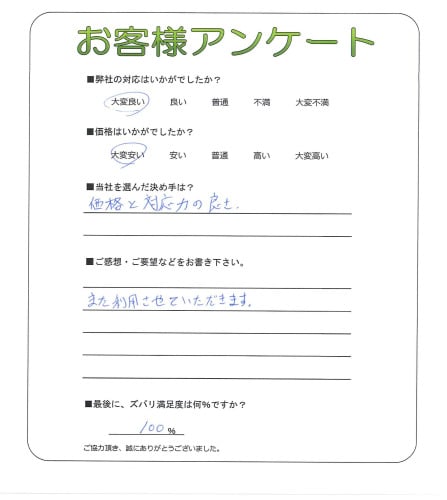 お客様アンケート
■弊社の対応はいかがでしたか？
大変良い 良い 普通 不満 大変不満
■価格はいかがでしたか？
大変安い 安い 普通 高い 大変高い
■当社を選んだ決め手は？
価格と対応力の良さ.
■ご感想・ご要望などをお書き下さい。
また利用させていただきます。
■最後に、ズバリ満足度は何%ですか？
100 %
ご協力頂き、誠にありがとうございました。